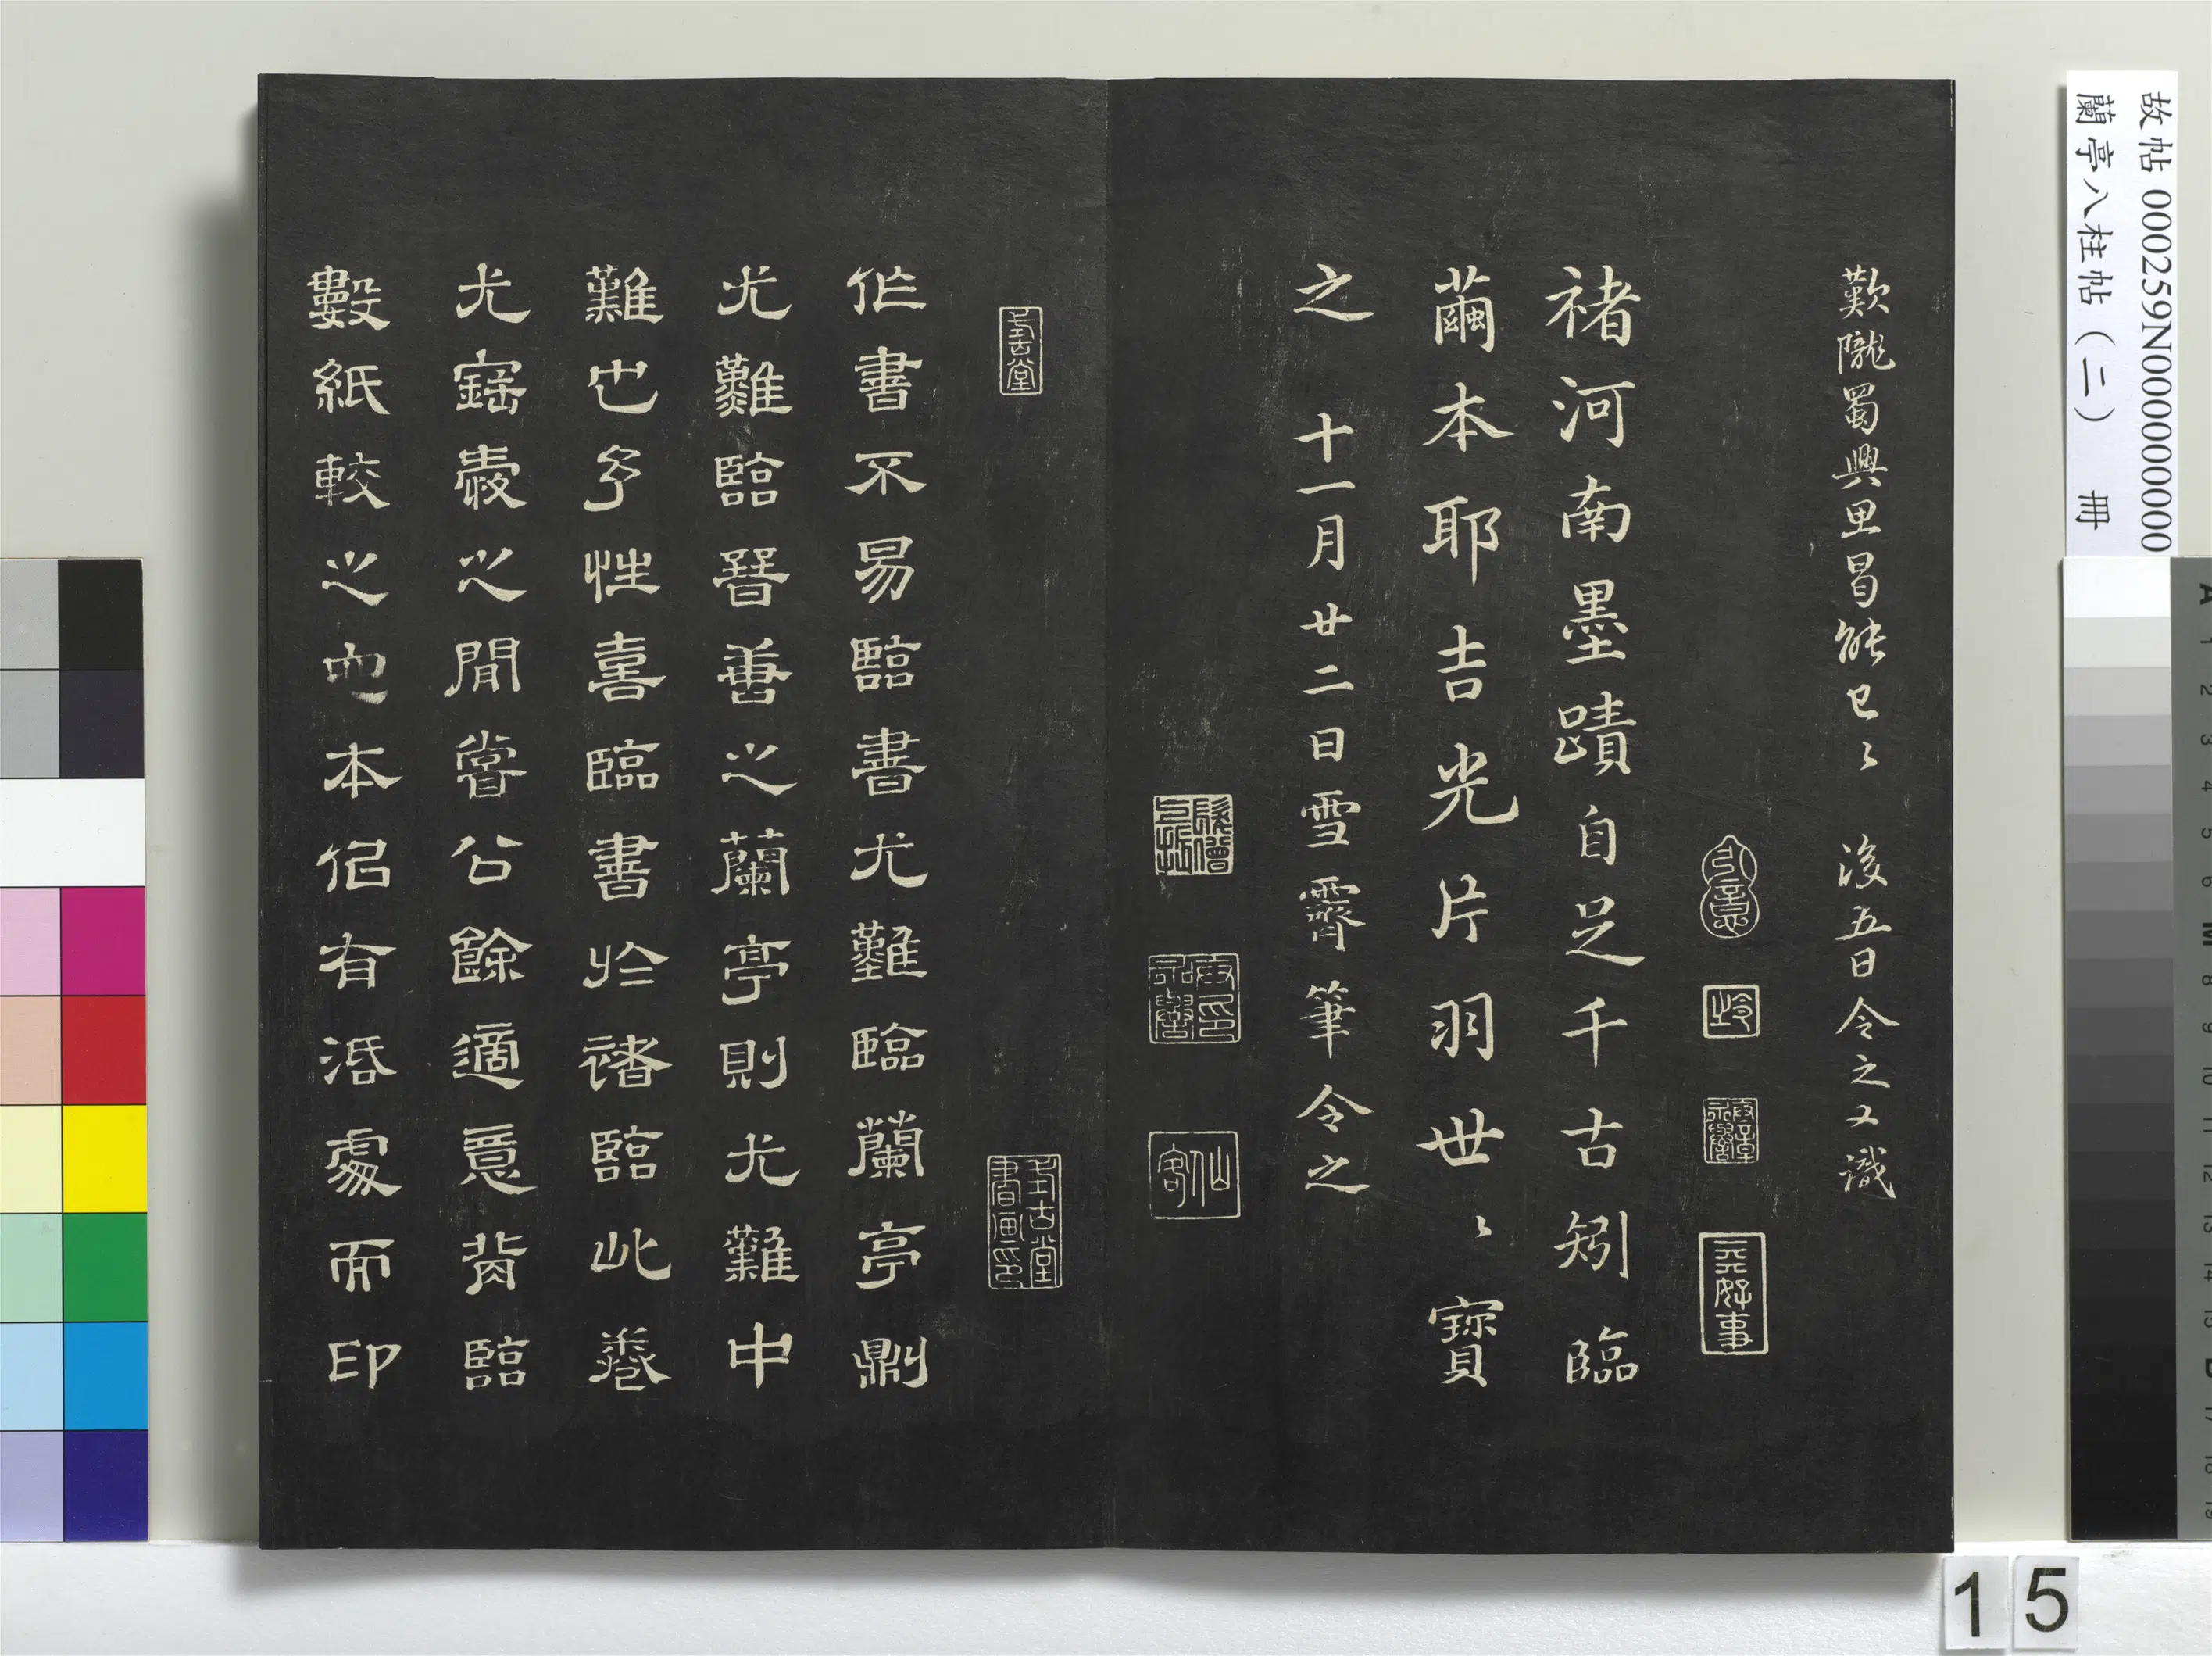 歎隴蜀興思曷能已々 後五日令之又識
褚河南墨蹟自足千古矧臨
繭本耶吉光片羽世、寶
之 十一月廿二日雪霽筆令之
仙客
元好事
作書不易臨書尤難臨蘭亭則
尤難臨晉善之蘭亭則尤難中
難也予性喜臨書於褚臨此卷
尤寤寐之間嘗公餘適意背臨
數紙較之也本侶有活處而印
式古堂
式古堂書畫印
故帖 000259N000000000
蘭亭八柱帖(二) 冊
15